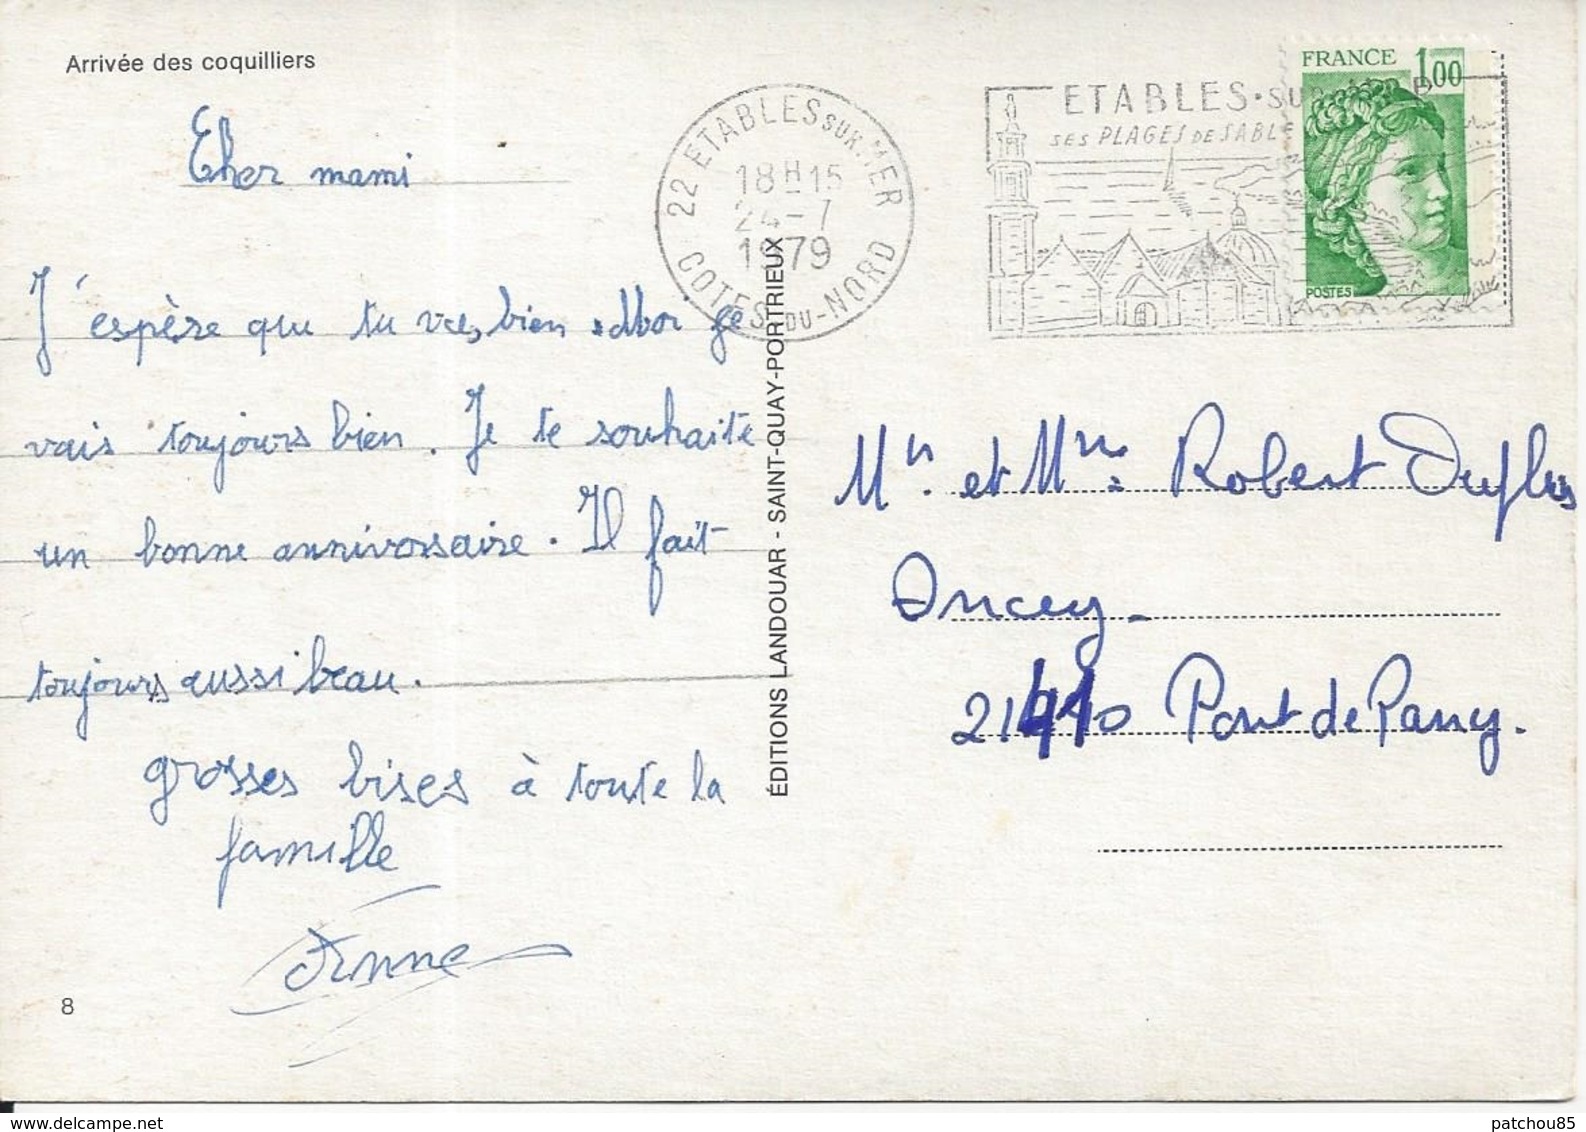 Arrivée des coquilliers
Cher mami
J'espère que tu vas bien. Moi je
vais toujours bien. Je te souhaite
un bonne anniverssaire. Il fait
toujours aussi beau.
grosses bises à toute la
famille
Anne
8
22 ETABLES SUR MER
18H15
24-7
1979
COTES-DU-NORD
ETABLES-SUR
SES PLAGES DE SABLE
FRANCE 1,00
POSTES
ÉDITIONS LANDOUAR - SAINT-QUAY-PORTRIEUX
et Robert
Ancey
21410 Pont de Pany.
patchou85